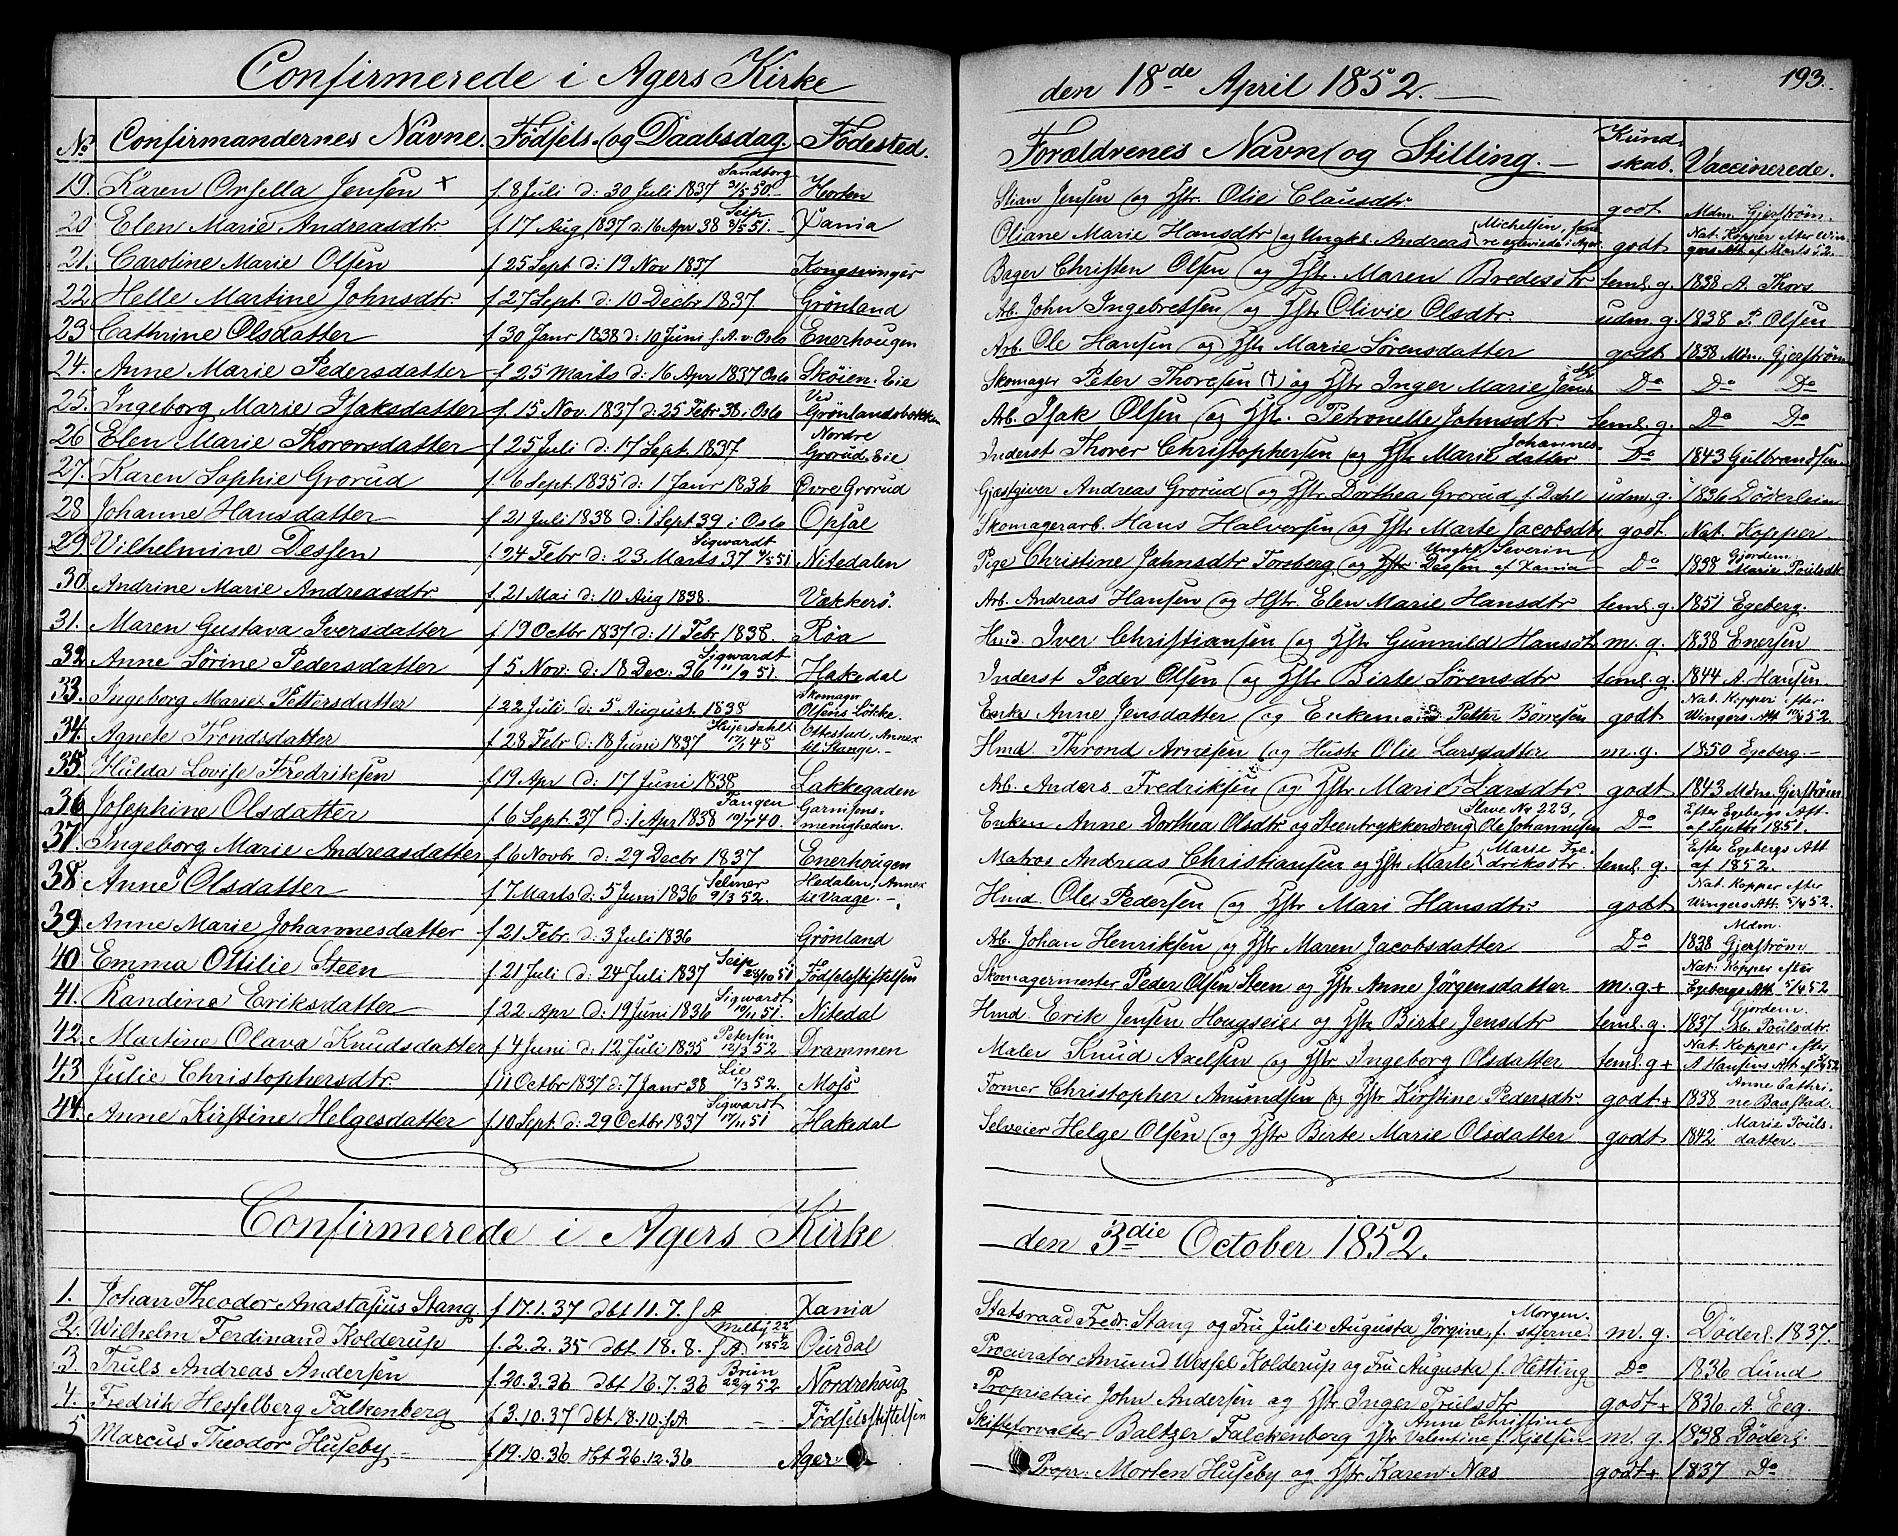 Confirmerede i Agers Kirke den 18de April 1852. 193.
No Confirmandernes Navne. Fødsels- og Daabsdag. Fødested. Forældrenes Navn og Stilling. Kundskab. Vaccinerede.
19. Karen Orsella Jensen + f 8 Juli d: 30 Juli 1837 Sandberg 31/5 50 Horten Stian Jensen og Hstr. Olie Clausdtr. godt Mdm. Gjerstrøm
20 Elen Marie Andreasdtr f 17 Aug 1837 d: 16 Apr 38 Seip 3/5 51. Xania Oliane Marie Hansdtr og Ungkl Andreas Michelsen godt Nat. Kopper efter Wingers Att. af Marts 52.
21. Caroline Marie Olsen f 25 Sept d: 19 Nov 1837 Kongsvinger Bager Christen Olsen og Hstr. Maren Bredesdtr teml. g. 1838 A. Thors
22 Helle Martine Johnsdtr f 27 Sept d: 10 Decbr 1837 Grønland Arb. John Ingebretsen og Hstr Olivie Olsdtr. udm. g. 1838 P. Olsen
23 Cathrine Olsdatter f 30 Janr 1838 d: 10 Juni f. A. v. Oslo Enerhougen Arb. Ole Hansen og Hstr Marie Sørensdatter godt 1838 Mdm. Gjerstrøm
24. Anne Marie Pedersdatter f 25 Marts d: 16 Apr 1837 Oslo Skøien Eie Skomager Peter Thoresen (+) og Hstr Inger Marie Jensdtr Do Do Do
25. Ingeborg Marie Isaksdatter f 15 Nov. 1837 d: 25 Febr 38 i Oslo Ved Grønlandsbakken Arb. Isak Olsen og Hstr. Petronelle Johnsdtr teml. g. Do Do
26 Elen Marie Thorersdatter f 25 Juli d: 17 Sept. 1837 Nordre Grorud Eie Inderst Thorer Christophersen og Hstr Marie Johannesdatter Do 1843 Gulbrandsen
27. Karen Sophie Grorud f 6 Sept. 1835 d: 1 Janr 1836 Øvre Grorud Gjæstgiver Andreas Grorud og Hstr Dorthea Grorud f. Dahl udm. g. 1836 Døderlein
28 Johanne Hansdatter f 21 Juli 1838 d: 1 Sept 39 i Oslo Opsal Skomagerarb. Hans Halversen og Hstr Marte Jacobsdtr godt Nat. Kopper
29 Vilhelmine Dessen f 24 Febr d: 23 Marts 37 Sigwardt 9/5 51 Nitedalen Pige Christine Jahnsdtr Forsberg og Ungkl Severin Dessen af Xania Do 1838 Gjordem. Marie Poulsdtr
30 Andrine Marie Andreasdtr f 21 Mai d: 10 Aug 1838. Vækkerø Arb. Andreas Hansen og Hstr. Elen Marie Hansdtr teml. g. 1851 Egeberg.
31. Maren Gustava Iversdatter f 19 Octbr 1837 d: 11 Febr 1838. Røa Hmd. Iver Christiansen og Hstr Gunnild Hansdtr m. g. 1838 Enersen
32 Anne Sørine Pedersdatter f 5 Nov. d: 18 Dec: 36 Sigwardt 11/9 51. Hakedal Inderst Peder Olsen og Hstr Birte Sørensdtr teml. g. 1844 A. Hansen
33. Ingeborg Marie Pettersdatter f 22 Juli d: 5 August 1838 Skomager Olsens Løkke. Enke Anne Jensdatter og Enkemand Petter Børresen godt Nat. Kopper efter Wingers Att. 10/4 52.
34. Agnete Trondsdatter f 28 Febr d: 18 Juni 1837 17/7 48 Ottestad, Annex til Stange. Hmd Thrond Arnesen og Hustr Olie Larsdatter m. g. 1850 Egeberg.
35 Hulda Lovise Fredriksen f 19 Apr d: 17 Juni 1838 Lakkegaden Arb. Anders Fredriksen og Hstr Marie Larsdtr. godt 1843 Mdm. Gjerstrøm
36 Josephine Olsdatter f 6 Sept. 37 d: 1 Apr 1838 Tangen 10/7 40. Garnisons-menigheden. Enken Anne Dorthea Olsdtr og Steentrykkerdreng Slave No 223, Ole Johannesen Do Efter Egebergs Att. af Septbr 1851.
37. Ingeborg Marie Andreasdatter f 6 Novbr d: 29 Decbr 1837 Enerhougen Matros Andreas Christiansen og Hstr Marte Marie Fredriksdtr teml. g. Efter Egebergs Att af 1852.
38 Anne Olsdatter f 7 Marts d: 5 Juni 1836 Selmer 9/3 52. Hedalen, Annex til Vaage. Hmd. Ole Pedersen og Hstr Mari Hansdtr. godt Nat. Kopper efter Wingers Att. 5/4 52.
39 Anne Marie Johannesdatter f 21 Febr. d: 3 Juli 1836 Grønland Arb. Johan Henriksen og Hstr Maren Jacobsdatter Do 1838 Mdm. Gjerstrøm
40 Emma Ottilie Steen f. 21 Juli d: 24 Juli 1837 Seip 28/10 51 Fødselsstiftelsen Skomagermester Peder Olsen Steen og Hstr Anne Jørgensdatter m. g + Nat: Kopper efter Egebergs Att. 5/4 52
41. Randine Eriksdatter f 22 Apr d: 19 Juni 1836 Sigwardt 10/11 51. Nitedal Hmd. Erik Jensen Hougseie og Hstr Birte Jensdtr teml. g. 1837 Gjordem. Poulsdtr.
42. Martine Olava Knudsdatter f 4 Juni d: 12 Juli 1835 Petersen 12/3 52 Drammen Maler Knud Axelsen og Hstr Ingeborg Olsdatter teml. g + Nat. Kopper efter A Hansens Att.
43 Julie Christophersdtr. f 11 Octbr 1837 d: 7 Janr 38 Lie 1/3 52. Moss Former Christopher Amundsen og Hstr Kirstine Pedersdtr godt + 1838 Anne Cathrine Baastad.
44. Anne Kirstine Helgesdatter f. 10 Sept. d: 29 Octbr 1837 Sigwardt 17/11 51 Hakedal Selveier Helge Olsen og Hstr Birte Marie Olsdatter godt 1842 Marie Poulsdatter.
Confirmerede i Agers Kirke den 3die October 1852.
1. Johan Theodor Anastasius Stang f 17. 1. 37 dbt 11. 7. s A Xania Statsraad Fredr. Stang og Fru Julie Augusta Jørgine, f. Morgenstjerne. m. g. Døderl. 1837.
2. Wilhelm Ferdinand Kolderup f. 2. 2. 35 dbt 18. 8. s A. Melby 22/4 1852 Ourdal Procurator Amund Wessel Kolderup og Fru Augusta f. Hetting Do 1836 Lund
3. Truls Andreas Andersen f. 20. 3. 36 dbt 16. 7. 36 Brun 22/9 52 Nordrehoug Proprietair John Andersen og Hstr Inger Trulsdtr godt + 1836 A. Eeg.
4. Fredrik Hesselberg Falkenberg f 3. 10. 37 dbt 18. 10. s A Fødselsstiftelsen Skifteforvalter Baltzer Falckenberg Hstr Anne Christine Valentine f. Gjelsen m. g. 1838 Døderl.
5 Marcus Theodor Huseby f 19. 10. 36 dbt 26. 12. 36 Ager Propr: Morten Huseby og Hstr Karen Næs godt + 1837 Do